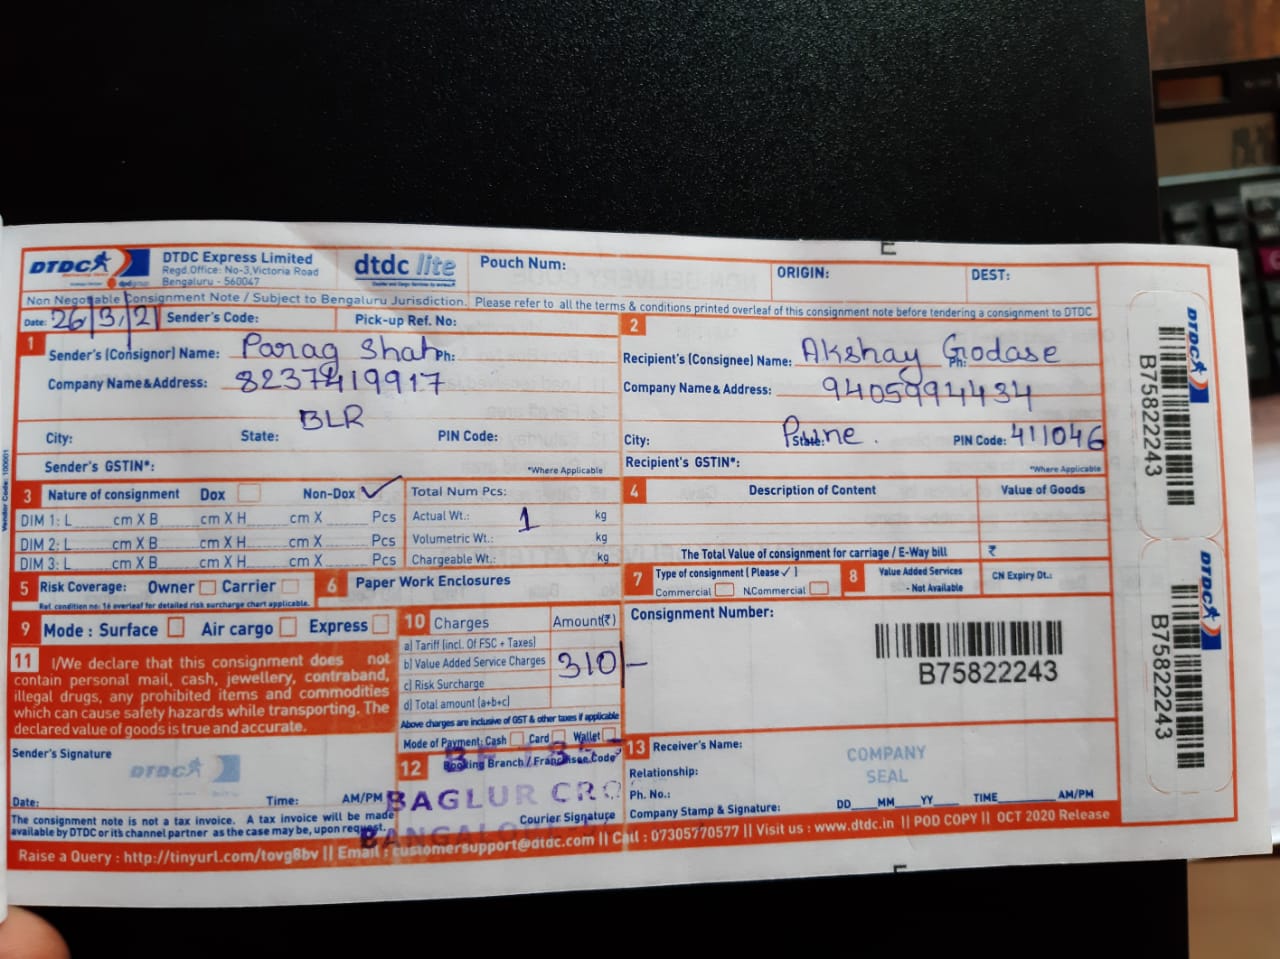 DTDC
DTDC Express Limited
Regd.Office: No-3,Victoria Road
Bengaluru - 560047
dtdc lite
Pouch Num:
ORIGIN:
DEST:
Non Negotiable Consignment Note / Subject to Bengaluru Jurisdiction. Please refer to all the terms & conditions printed overleaf of this consignment note before tendering a consignment to DTDC
Date: 26/3/21 Sender's Code: Pick-up Ref. No:
1
Sender's (Consignor) Name: Parag Shah Ph:
Company Name & Address: 8237419917
BLR
City: State: PIN Code:
Sender's GSTIN*: *Where Applicable
2
Recipient's (Consignee) Name: Akshay Godase Ph:
Company Name & Address: 9405994434
City: State: Pune. PIN Code: 411046
Recipient's GSTIN*: *Where Applicable
3 Nature of consignment Dox Non-Dox ✓
DIM 1: L cm X B cm X H cm X Pcs
DIM 2: L cm X B cm X H cm X Pcs
DIM 3: L cm X B cm X H cm X Pcs
Total Num Pcs:
Actual Wt.: 1 kg
Volumetric Wt.: kg
Chargeable Wt.: kg
4 Description of Content Value of Goods
The Total Value of consignment for carriage / E-Way bill ₹
5 Risk Coverage: Owner Carrier
Ref. condition no: 16 overleaf for detailed risk surcharge chart applicable.
6 Paper Work Enclosures
7 Type of consignment ( Please ✓ )
Commercial NCommercial
8 Value Added Services
- Not Available
CN Expiry Dt.:
9 Mode : Surface Air cargo Express
10 Charges Amount(₹)
a) Tariff (incl. Of FSC + Taxes)
b) Value Added Service Charges
c) Risk Surcharge
d) Total amount (a+b+c)
310/-
Above charges are inclusive of GST & other taxes if applicable
Mode of Payment: Cash Card Wallet
11 I/We declare that this consignment does not
contain personal mail, cash, jewellery, contraband,
illegal drugs, any prohibited items and commodities
which can cause safety hazards while transporting. The
declared value of goods is true and accurate.
Sender's Signature
DTDC
Date: Time: AM/PM
The consignment note is not a tax invoice. A tax invoice will be made
available by DTDC or its channel partner as the case may be, upon request.
12 Booking Branch / Franchisee Code
BAGLUR CRO
Courier Signature
Consignment Number:
B75822243
13 Receiver's Name:
Relationship:
Ph. No.:
Company Stamp & Signature:
COMPANY
SEAL
DD MM YY TIME AM/PM
Raise a Query : http://tinyurl.com/tovg8bv || Email : customersupport@dtdc.com || Call : 07305770577 || Visit us : www.dtdc.in || POD COPY || OCT 2020 Release
DTDC
B75822243
DTDC
B75822243
Vendor Code: 100001